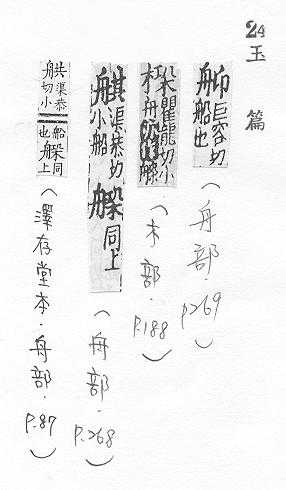 24 玉篇
巨容切船也（舟部．p269）
瞿龍切小舟（木部．p.188）
渠恭切小船 同上（舟部．p.268）
舼渠恭切小船也 同上（澤存堂本．舟部．p.87）